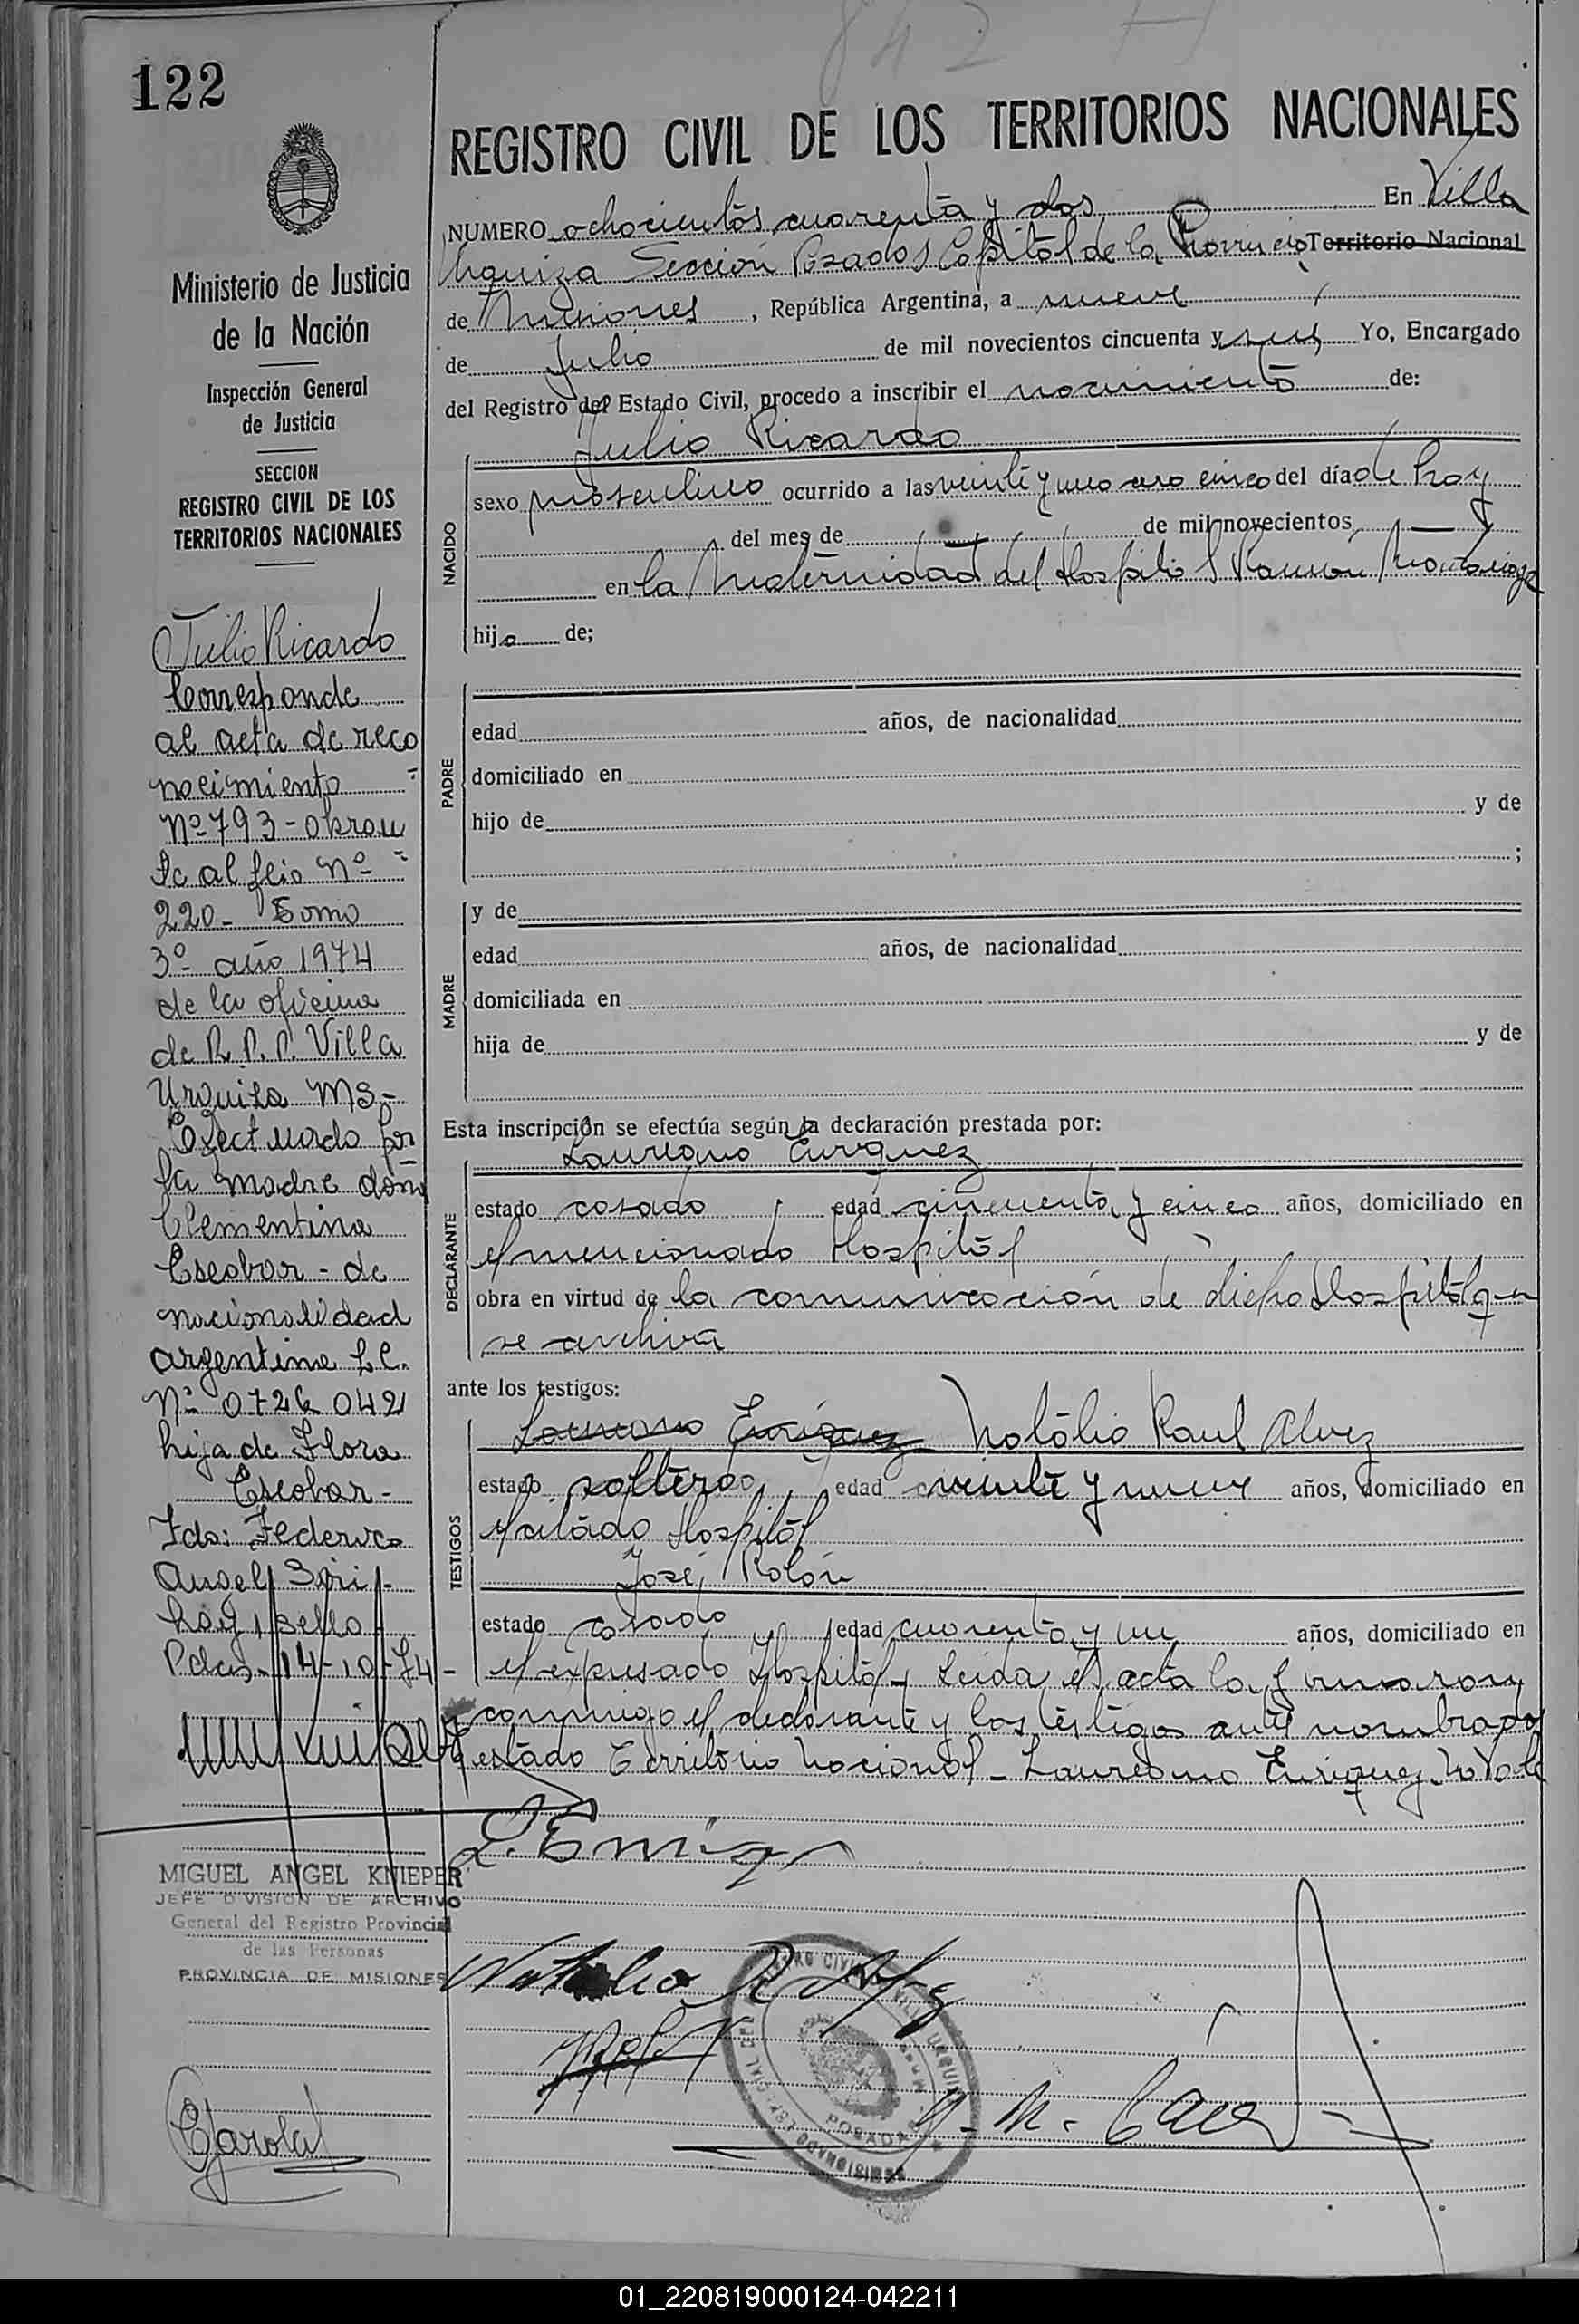 842 H
122
REGISTRO CIVIL DE LOS TERRITORIOS NACIONALES
NUMERO ochocientos cuarenta y dos En Villa
Urquiza Sección Posadas Capital de la Provincia Territorio Nacional
de Misiones, República Argentina, a nueve
de Julio de mil novecientos cincuenta y seis Yo, Encargado
del Registro del Estado Civil, procedo a inscribir el nacimiento de:
Julio Ricardo
NACIDO
sexo masculino ocurrido a las veinte y una cinco del día de hoy
del mes de de mil novecientos
en la Maternidad del Hospital Ramón Madariaga
hijo de;
PADRE
edad años, de nacionalidad
domiciliado en
hijo de y de
;
MADRE
y de
edad años, de nacionalidad
domiciliada en
hija de y de
Esta inscripción se efectúa según la declaración prestada por:
Laureano Enriquez
DECLARANTE
estado casado edad cincuenta y cinco años, domiciliado en
el mencionado Hospital
obra en virtud de la comunicación de dicho Hospital que
se archiva
ante los testigos:
TESTIGOS
Laureano Enriquez Natalio Raul Alvez
estado soltero edad veinte y nueve años, domiciliado en
el citado Hospital
José Rolón
estado casado edad cuarenta y un años, domiciliado en
el expresado Hospital Leida el acta la firmaron
conmigo el declarante y los testigos antes nombrados
testado Territorio Nacional - Laureano Enriquez.
L. Enriq
Natalio R Alvez
POSADAS
Ministerio de Justicia
de la Nación
Inspección General
de Justicia
SECCION
REGISTRO CIVIL DE LOS
TERRITORIOS NACIONALES
Julio Ricardo
Corresponde
al acta de reco
nocimiento
Nº 793 - obran
te al flio Nº
220 - Tomo
3º año 1974
de la oficina
de R. P. P. Villa
Urquiza MS -
Efectuado por
la madre doña
Clementina
Escobar - de
nacionalidad
argentina L.C.
Nº 0726 042
hija de Flora
Escobar -
Fdo: Federico
Angel
hay 1 sello
Pdas - 14-10-74 -
MIGUEL ANGEL KNIEPER
JEFE DIVISION DE ARCHIVO
General del Registro Provincial
de las Personas
PROVINCIA DE MISIONES
01_220819000124-042211